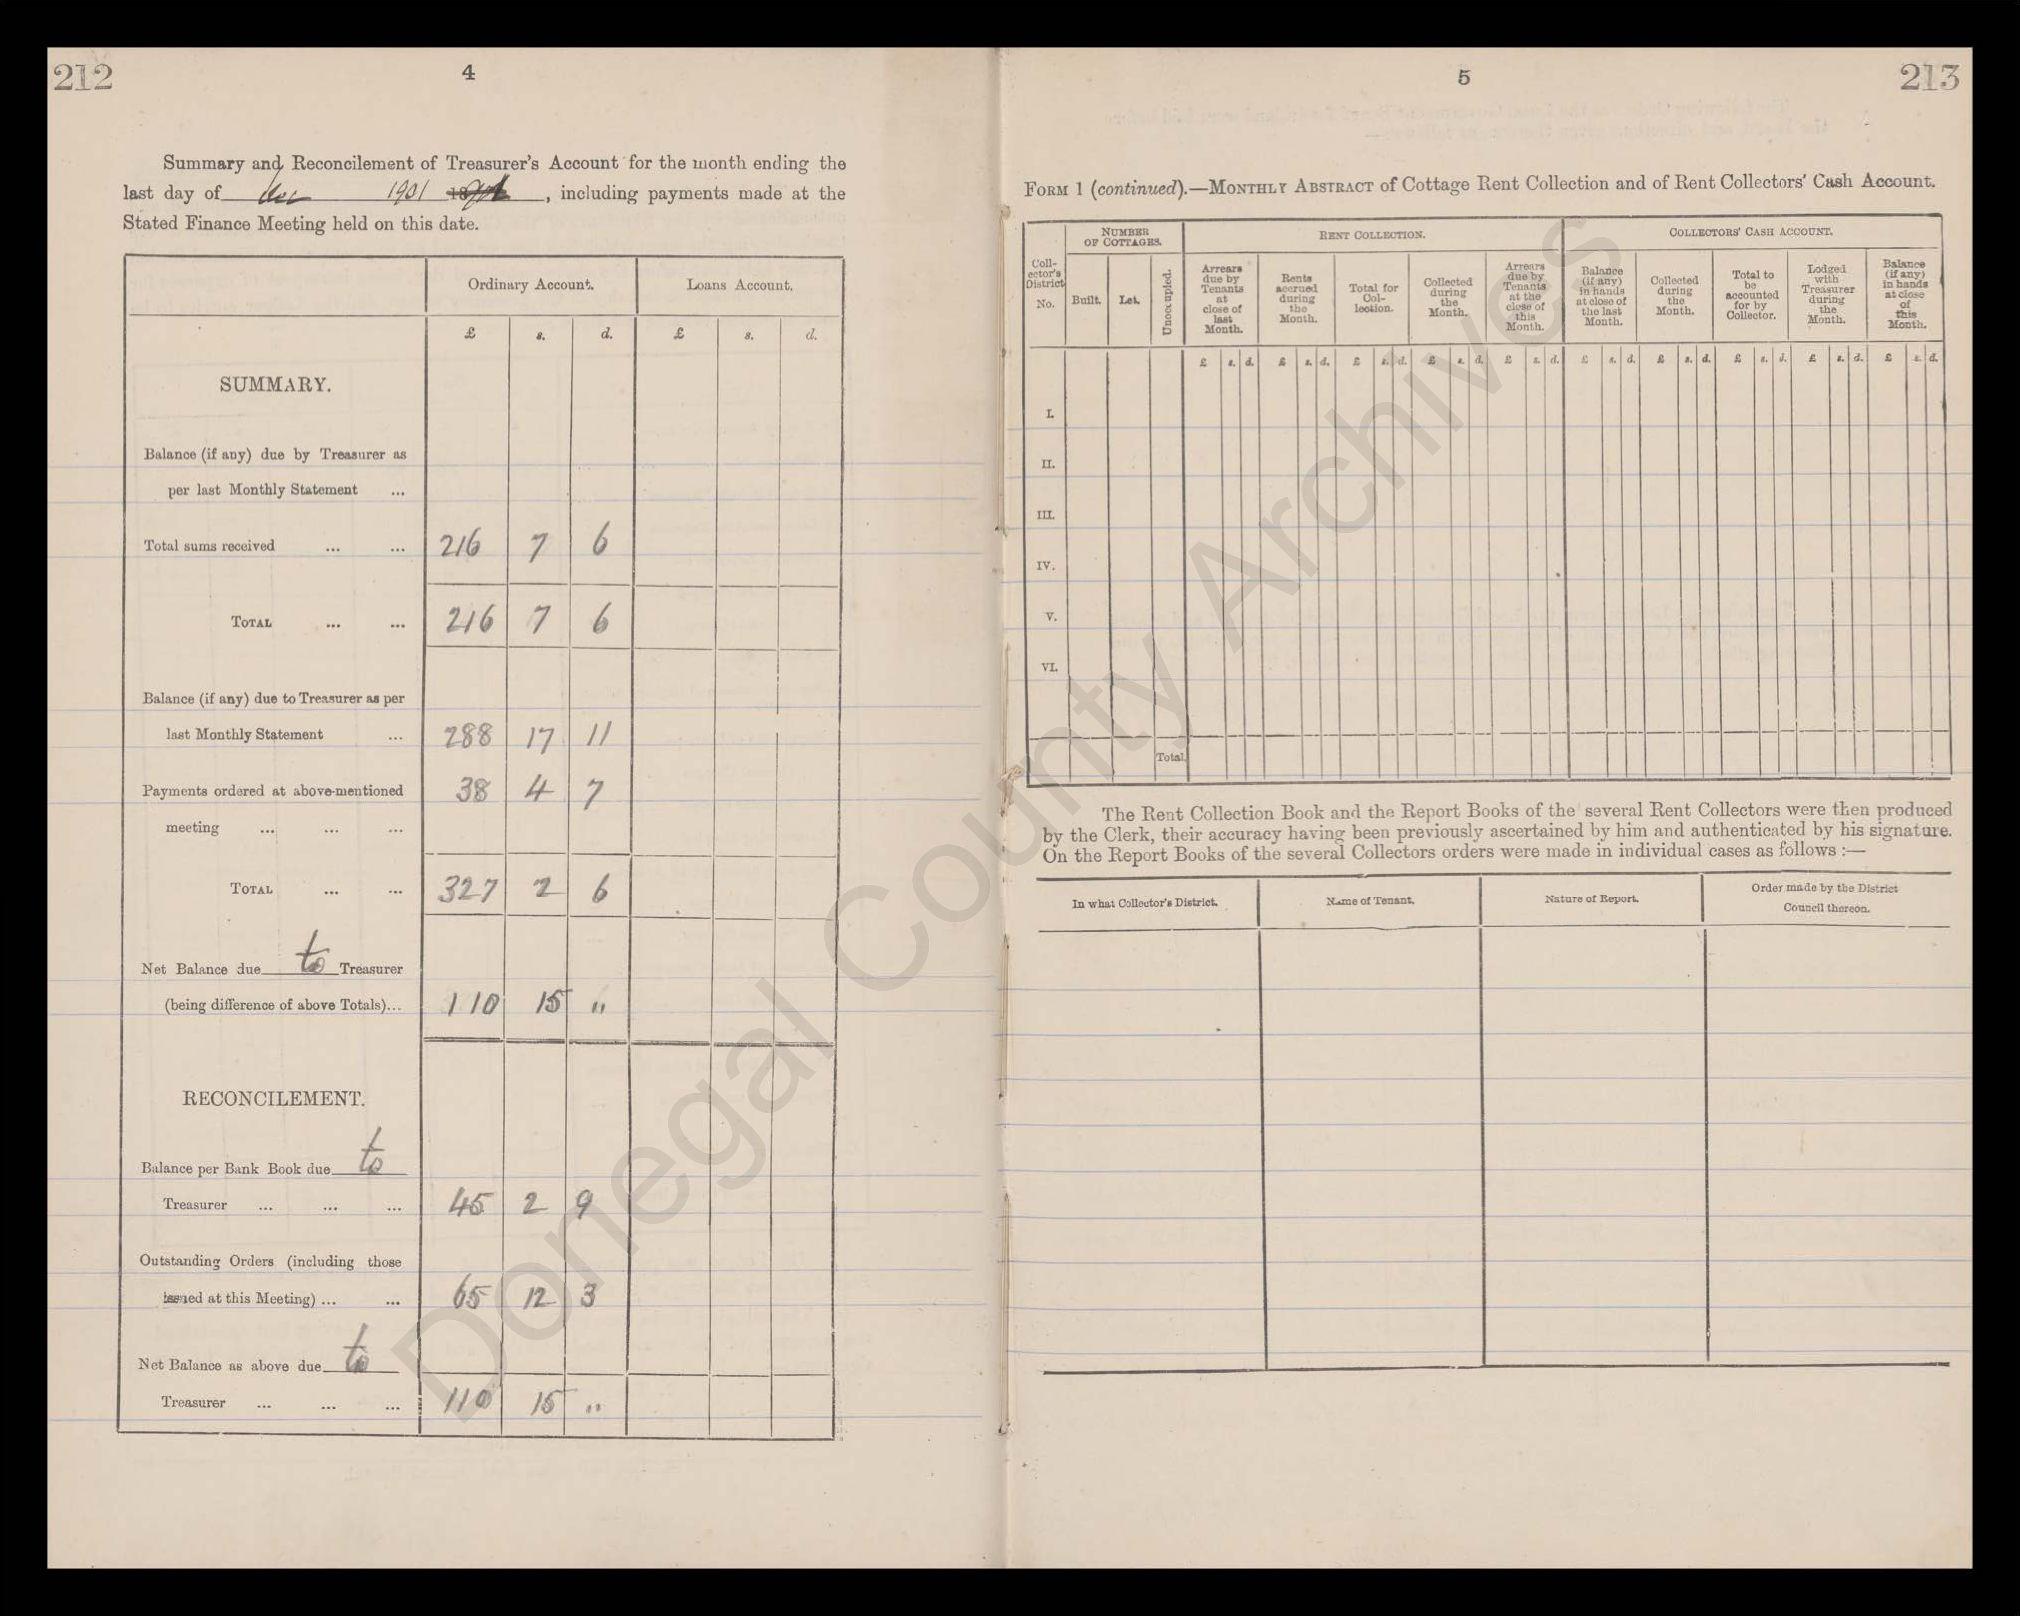 212
4
Summary and Reconcilement of Treasurer's Account for the month ending the
last day of Dec 1901, including payments made at the
Stated Finance Meeting held on this date.
Ordinary Account. Loans Account.
£ s. d. £ s. d.
SUMMARY.
Balance (if any) due by Treasurer as
per last Monthly Statement ...
Total sums received ... ... 216 7 6
TOTAL ... ... 216 7 6
Balance (if any) due to Treasurer as per
last Monthly Statement ... 288 17 11
Payments ordered at above-mentioned 38 4 7
meeting ... ... ...
TOTAL ... ... 327 2 6
Net Balance due to Treasurer
(being difference of above Totals)... 110 15 "
RECONCILEMENT.
Balance per Bank Book due to
Treasurer ... ... ... 45 2 9
Outstanding Orders (including those
issued at this Meeting) ... ... 65 12 3
Net Balance as above due to
Treasurer ... ... ... 110 15 "
5
213
FORM 1 (continued).—MONTHLY ABSTRACT of Cottage Rent Collection and of Rent Collectors' Cash Account.
Collector's District No.
NUMBER OF COTTAGES.
Built. Let. Unoccupied.
RENT COLLECTION.
Arrears due by Tenants at close of last Month.
Rents accrued during the Month.
Total for Collection.
Collected during the Month.
Arrears due by Tenants at the close of this Month.
COLLECTORS' CASH ACCOUNT.
Balance (if any) in hands at close of the last Month.
Collected during the Month.
Total to be accounted for by Collector.
Lodged with Treasurer during the Month.
Balance (if any) in hands at close of this Month.
£ s. d. £ s. d. £ s. d. £ s. d. £ s. d. £ s. d. £ s. d. £ s. d. £ s. d. £ s. d.
I.
II.
III.
IV.
V.
VI.
Total.
The Rent Collection Book and the Report Books of the several Rent Collectors were then produced
by the Clerk, their accuracy having been previously ascertained by him and authenticated by his signature.
On the Report Books of the several Collectors orders were made in individual cases as follows :—
In what Collector's District. Name of Tenant. Nature of Report. Order made by the District Council thereon.
Donegal County Archives